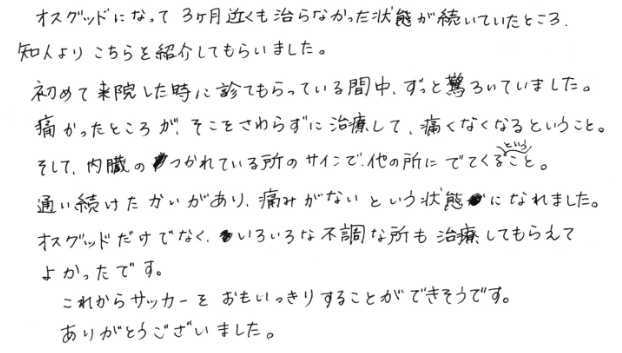 オスグッドになって3ヶ月近くも治らなかった状態が続いていたところ、
知人よりこちらを紹介してもらいました。
初めて来院した時に診てもらっている間中、ずっと驚ろいていました。
痛かったところが、そこをさわらずに治療して、痛くなくなるということ。
そして、内臓のつかれている所のサインで、他の所にでてくるということ。
通い続けたかいがあり、痛みがないという状態になれました。
オスグッドだけでなく、いろいろな不調な所も治療してもらえて
よかったです。
これからサッカーをおもいっきりすることができそうです。
ありがとうございました。